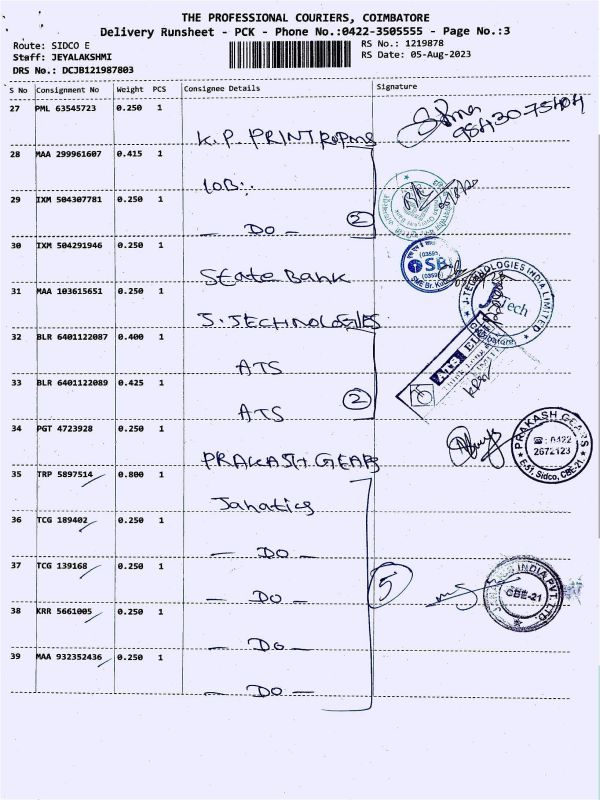 THE PROFESSIONAL COURIERS, COIMBATORE
Delivery Runsheet - PCK - Phone No.:0422-3505555 - Page No.:3
Route: SIDCO E
RS No.: 1219878
Staff: JEYALAKSHMI
RS Date: 05-Aug-2023
DRS No.: DCJB121987803
S No Consignment No Weight PCS Consignee Details Signature
27 PML 63545723 0.250 1
K.P. PRINT
28 MAA 299961607 0.415 1
IOB:.
29 IXM 504307781 0.250 1
— DO — 2
30 IXM 504291946 0.250 1
State Bank
SBI
31 MAA 103615651 0.250 1
J.TECHNOLOGIES
J-TECHNOLOGIES INDIA LIMITED
J Tech
Coimbatore
32 BLR 6401122087 0.400 1
ATS
33 BLR 6401122089 0.425 1
ATS 2
ATS
34 PGT 4723928 0.250 1
PRAKASH GEARS
PRAKASH GEARS
☎: 0422
2672123
E-51, Sidco, CBE-21.
35 TRP 5897514 0.800 1
Janatics
36 TCG 189402 0.250 1
— DO —
37 TCG 139168 0.250 1
— DO — 5
INDIA PVT. LTD.
CBE-21
38 KRR 5661005 0.250 1
— DO —
39 MAA 932352436 0.250 1
— DO —